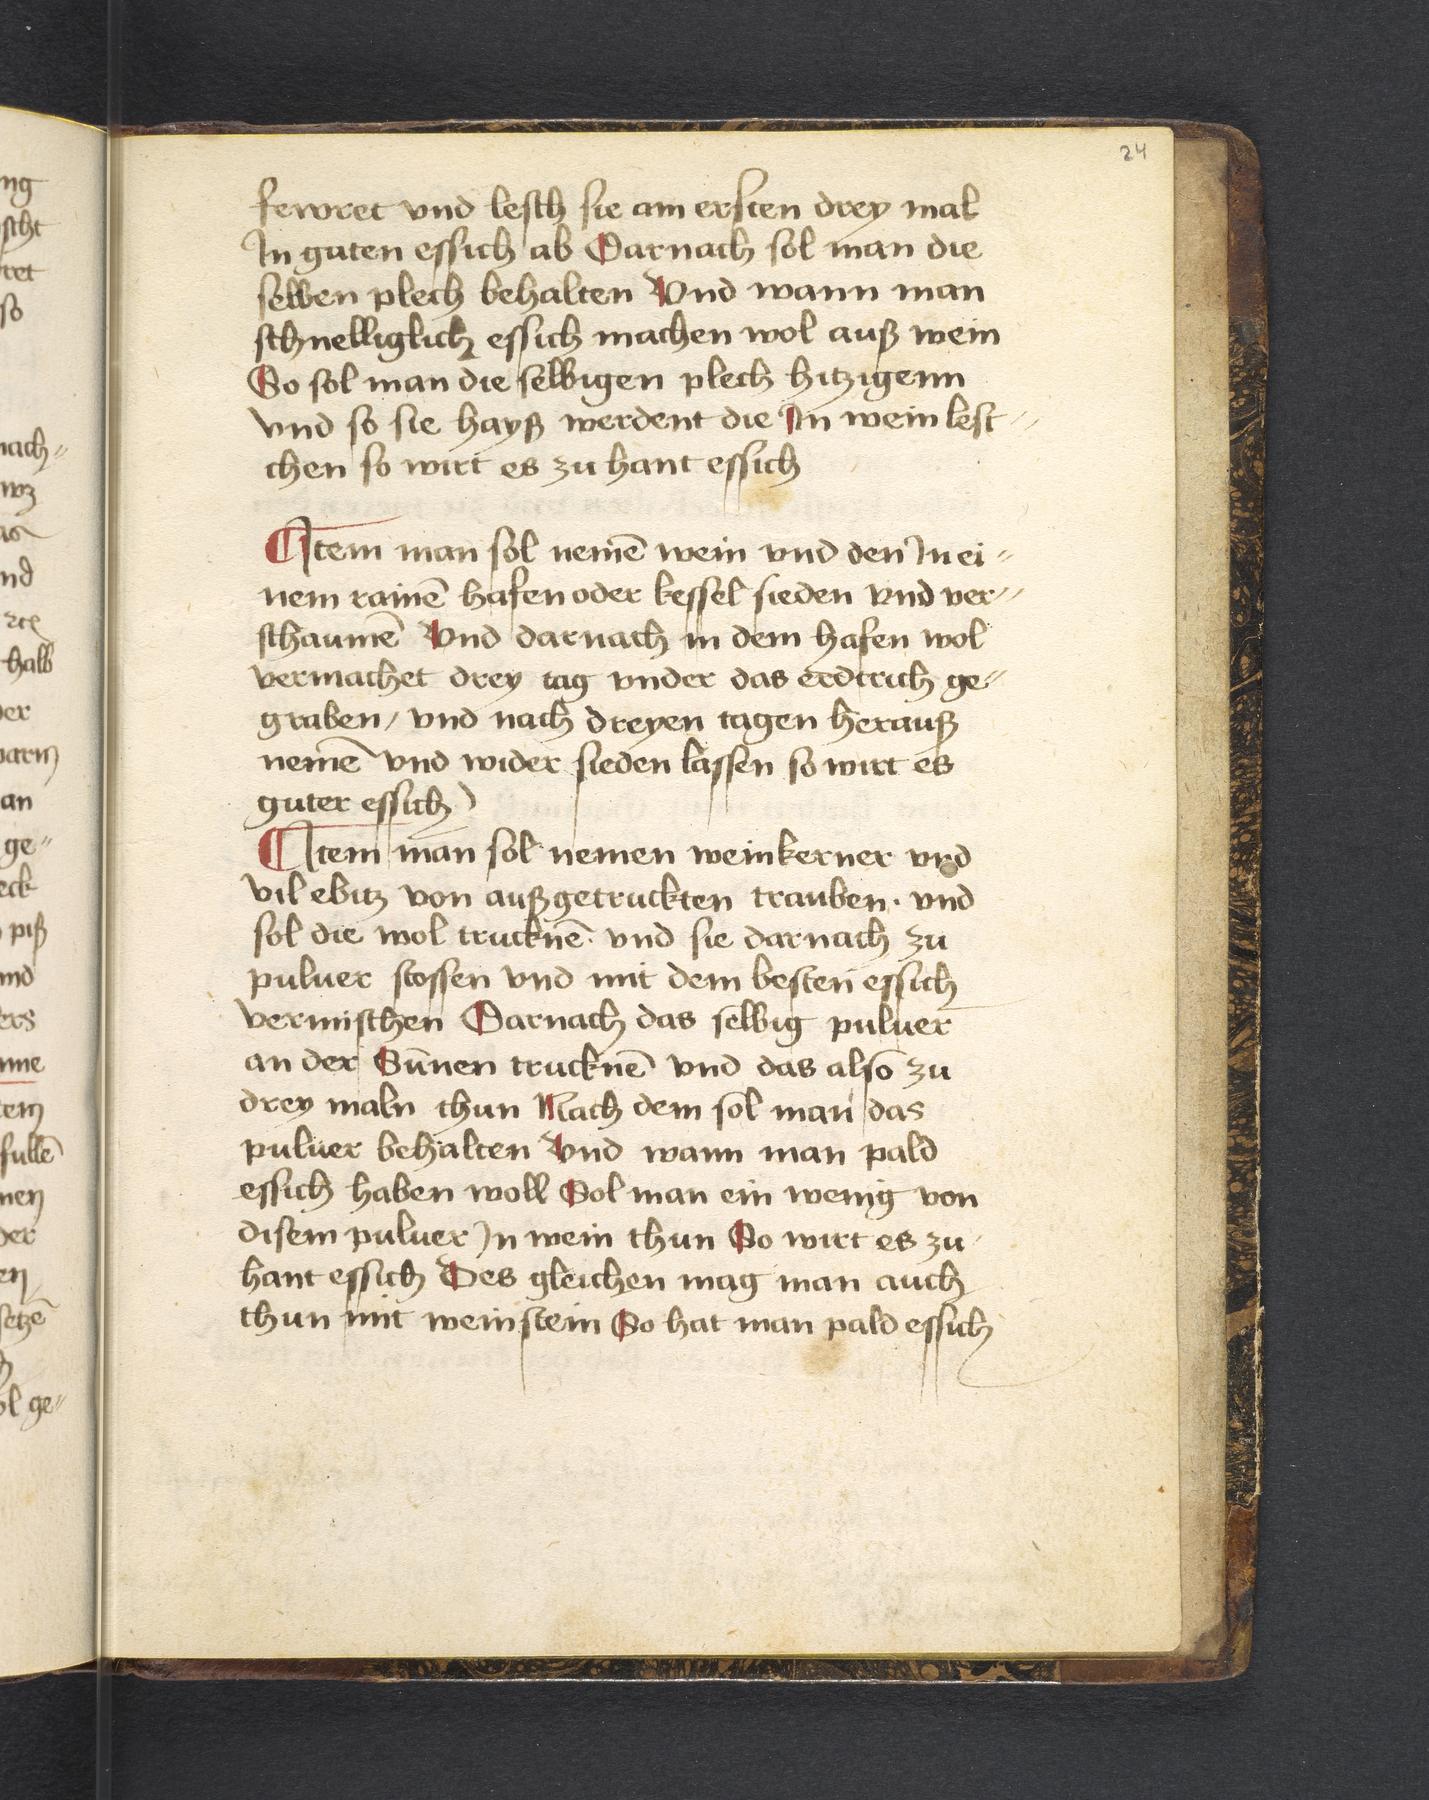 24
fewret vnd lesch sie am ersten drey mal
In guten essich ab Darnach sol man die
selben plech behalten Vnd wann man
schnelliglich essich machen wol auß wein
So sol man die selbigen plech hitzigenn
vnd so sie hayß werdent die In wein lest-
chen so wirt es zu hant essich
Item man sol nemē wein vnd den In ei-
nem rainē hafen oder kessel sieden vnd ver-
schaumē Vnd darnach in dem hafen wol
vermachet drey tag vnder das erdtrich ge-
graben / vnd nach dreyen tagen herauß
nemē vnd wider sieden lassen so wirt es
guter essich
Item man sol nemen weinkerner vnd
vil ebitz von außgetruckten trauben · vnd
sol die wol trucknē · vnd sie darnach zu
puluer stossen vnd mit dem besten essich
vermischen Darnach das selbig puluer
an der Sūnen trucknē vnd das also zu
drey maln thun Nach dem sol man das
puluer behalten Vnd wann man pald
essich haben woll Sol man ein wenig von
disem puluer In wein thun So wirt es zu
hant essich Des gleichen mag man auch
thun mit weinstein So hat man pald essich